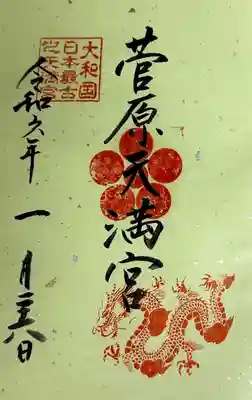 菅原天満宮
大和国
日本最古
之天満宮
令和六年一月二八日